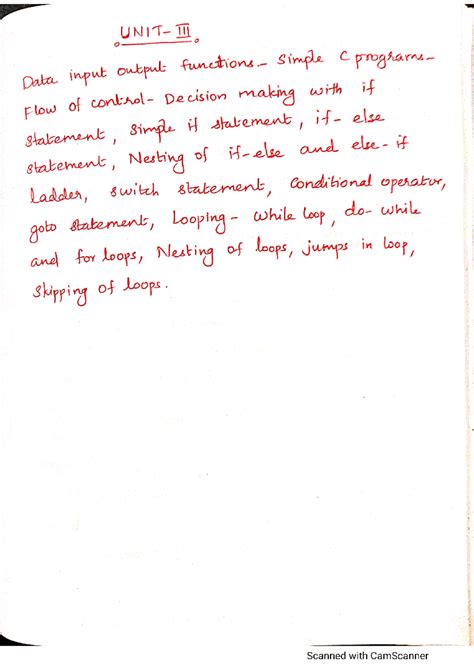 UNIT-III
Data input output functions - Simple C programs -
Flow of control - Decision making with if
statement, Simple if statement, if-else
statement, Nesting of if-else and else-if
ladder, switch statement, Conditional operator,
goto statement, Looping - while loop, do-while
and for loops, Nesting of loops, jumps in loop,
skipping of loops.
Scanned with CamScanner